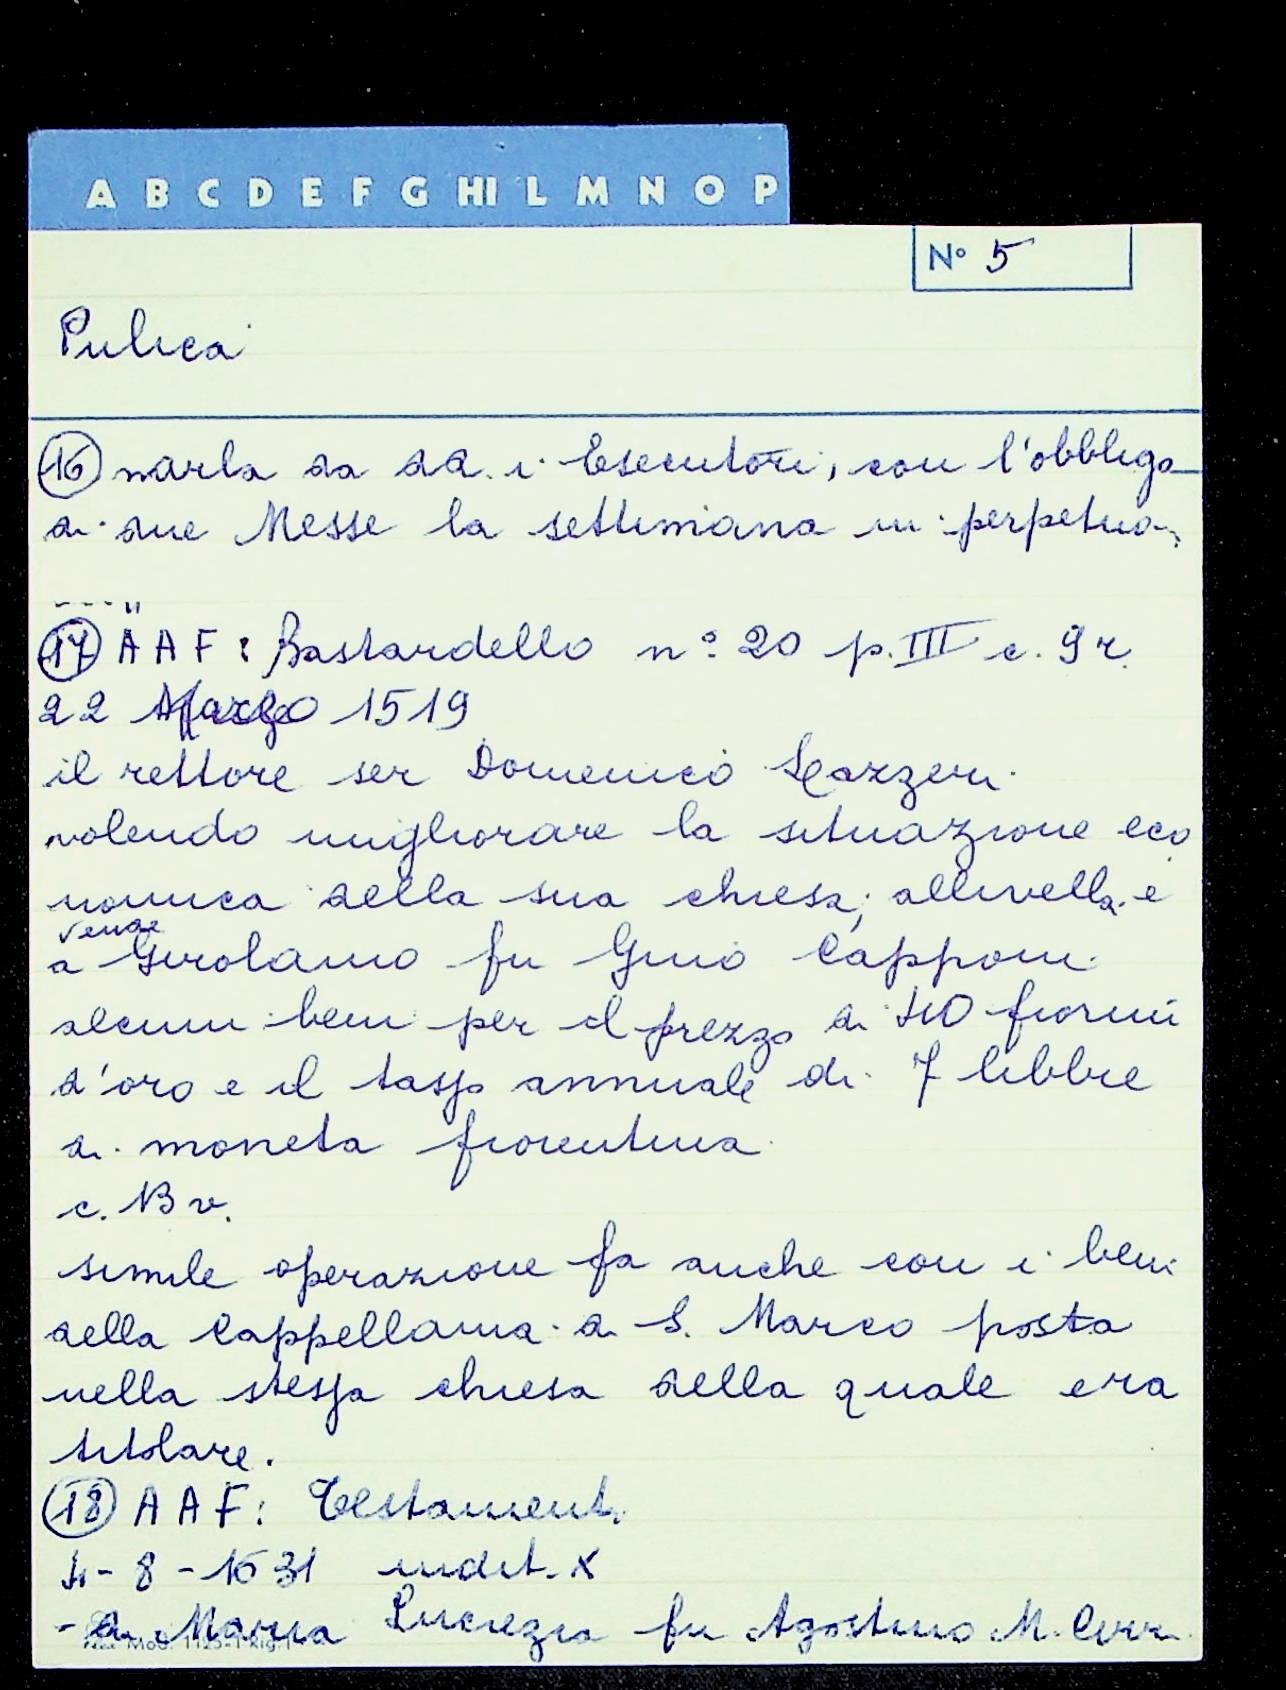 A B C D E F G HI L M N O P
N° 5
Pulica
(16) narla da dd. i Esecutori, con l'obbligo
di due Messe la settimana in perpetuo.
(17) A A F : Bastardello n° 20 p. III c. 9 r.
22 Marzo 1519
il rettore ser Domenico
volendo migliorare la situazione eco
nomica della sua chiesa, allivella e
vende
a Girolamo fu Gino Capponi
alcuni beni per il prezzo di 40 fiorini
d'oro e il tasso annuale di 7 libbre
di moneta fiorentina
c. 13 v.
simile operazione fa anche con i beni
della Cappellania di S. Marco posta
nella stessa chiesa della quale era
titolare.
(18) A A F : Testamenti
4 - 8 - 1631 indit. X
- di Maria Lucrezia fu Agostino M.